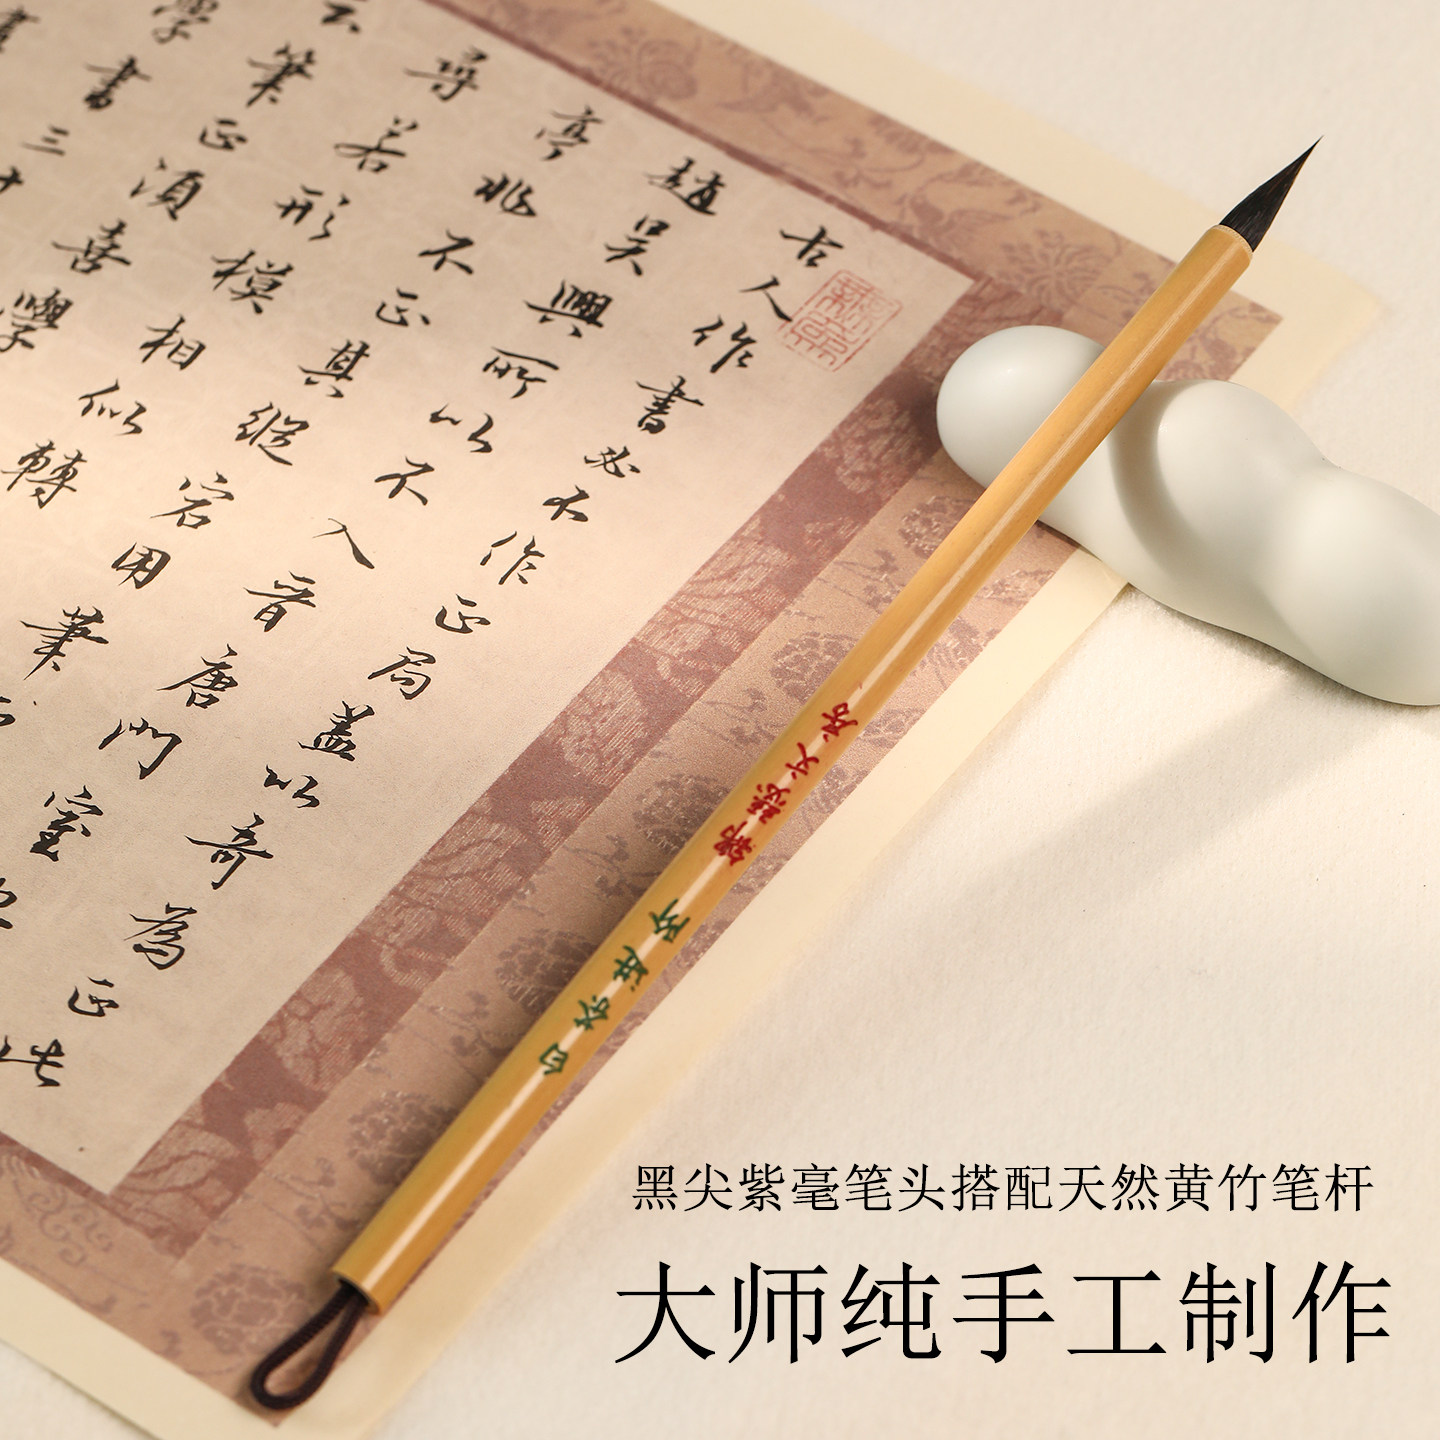 古人作書必不作正局盖以奇為正此
趙吳興所以不入晋唐門室
亭非不正其縱宕用筆
尋若形模相似轉
云筆正須善學
學書三十
白茶进阶 文房
黑尖紫毫笔头搭配天然黄竹笔杆
大师纯手工制作